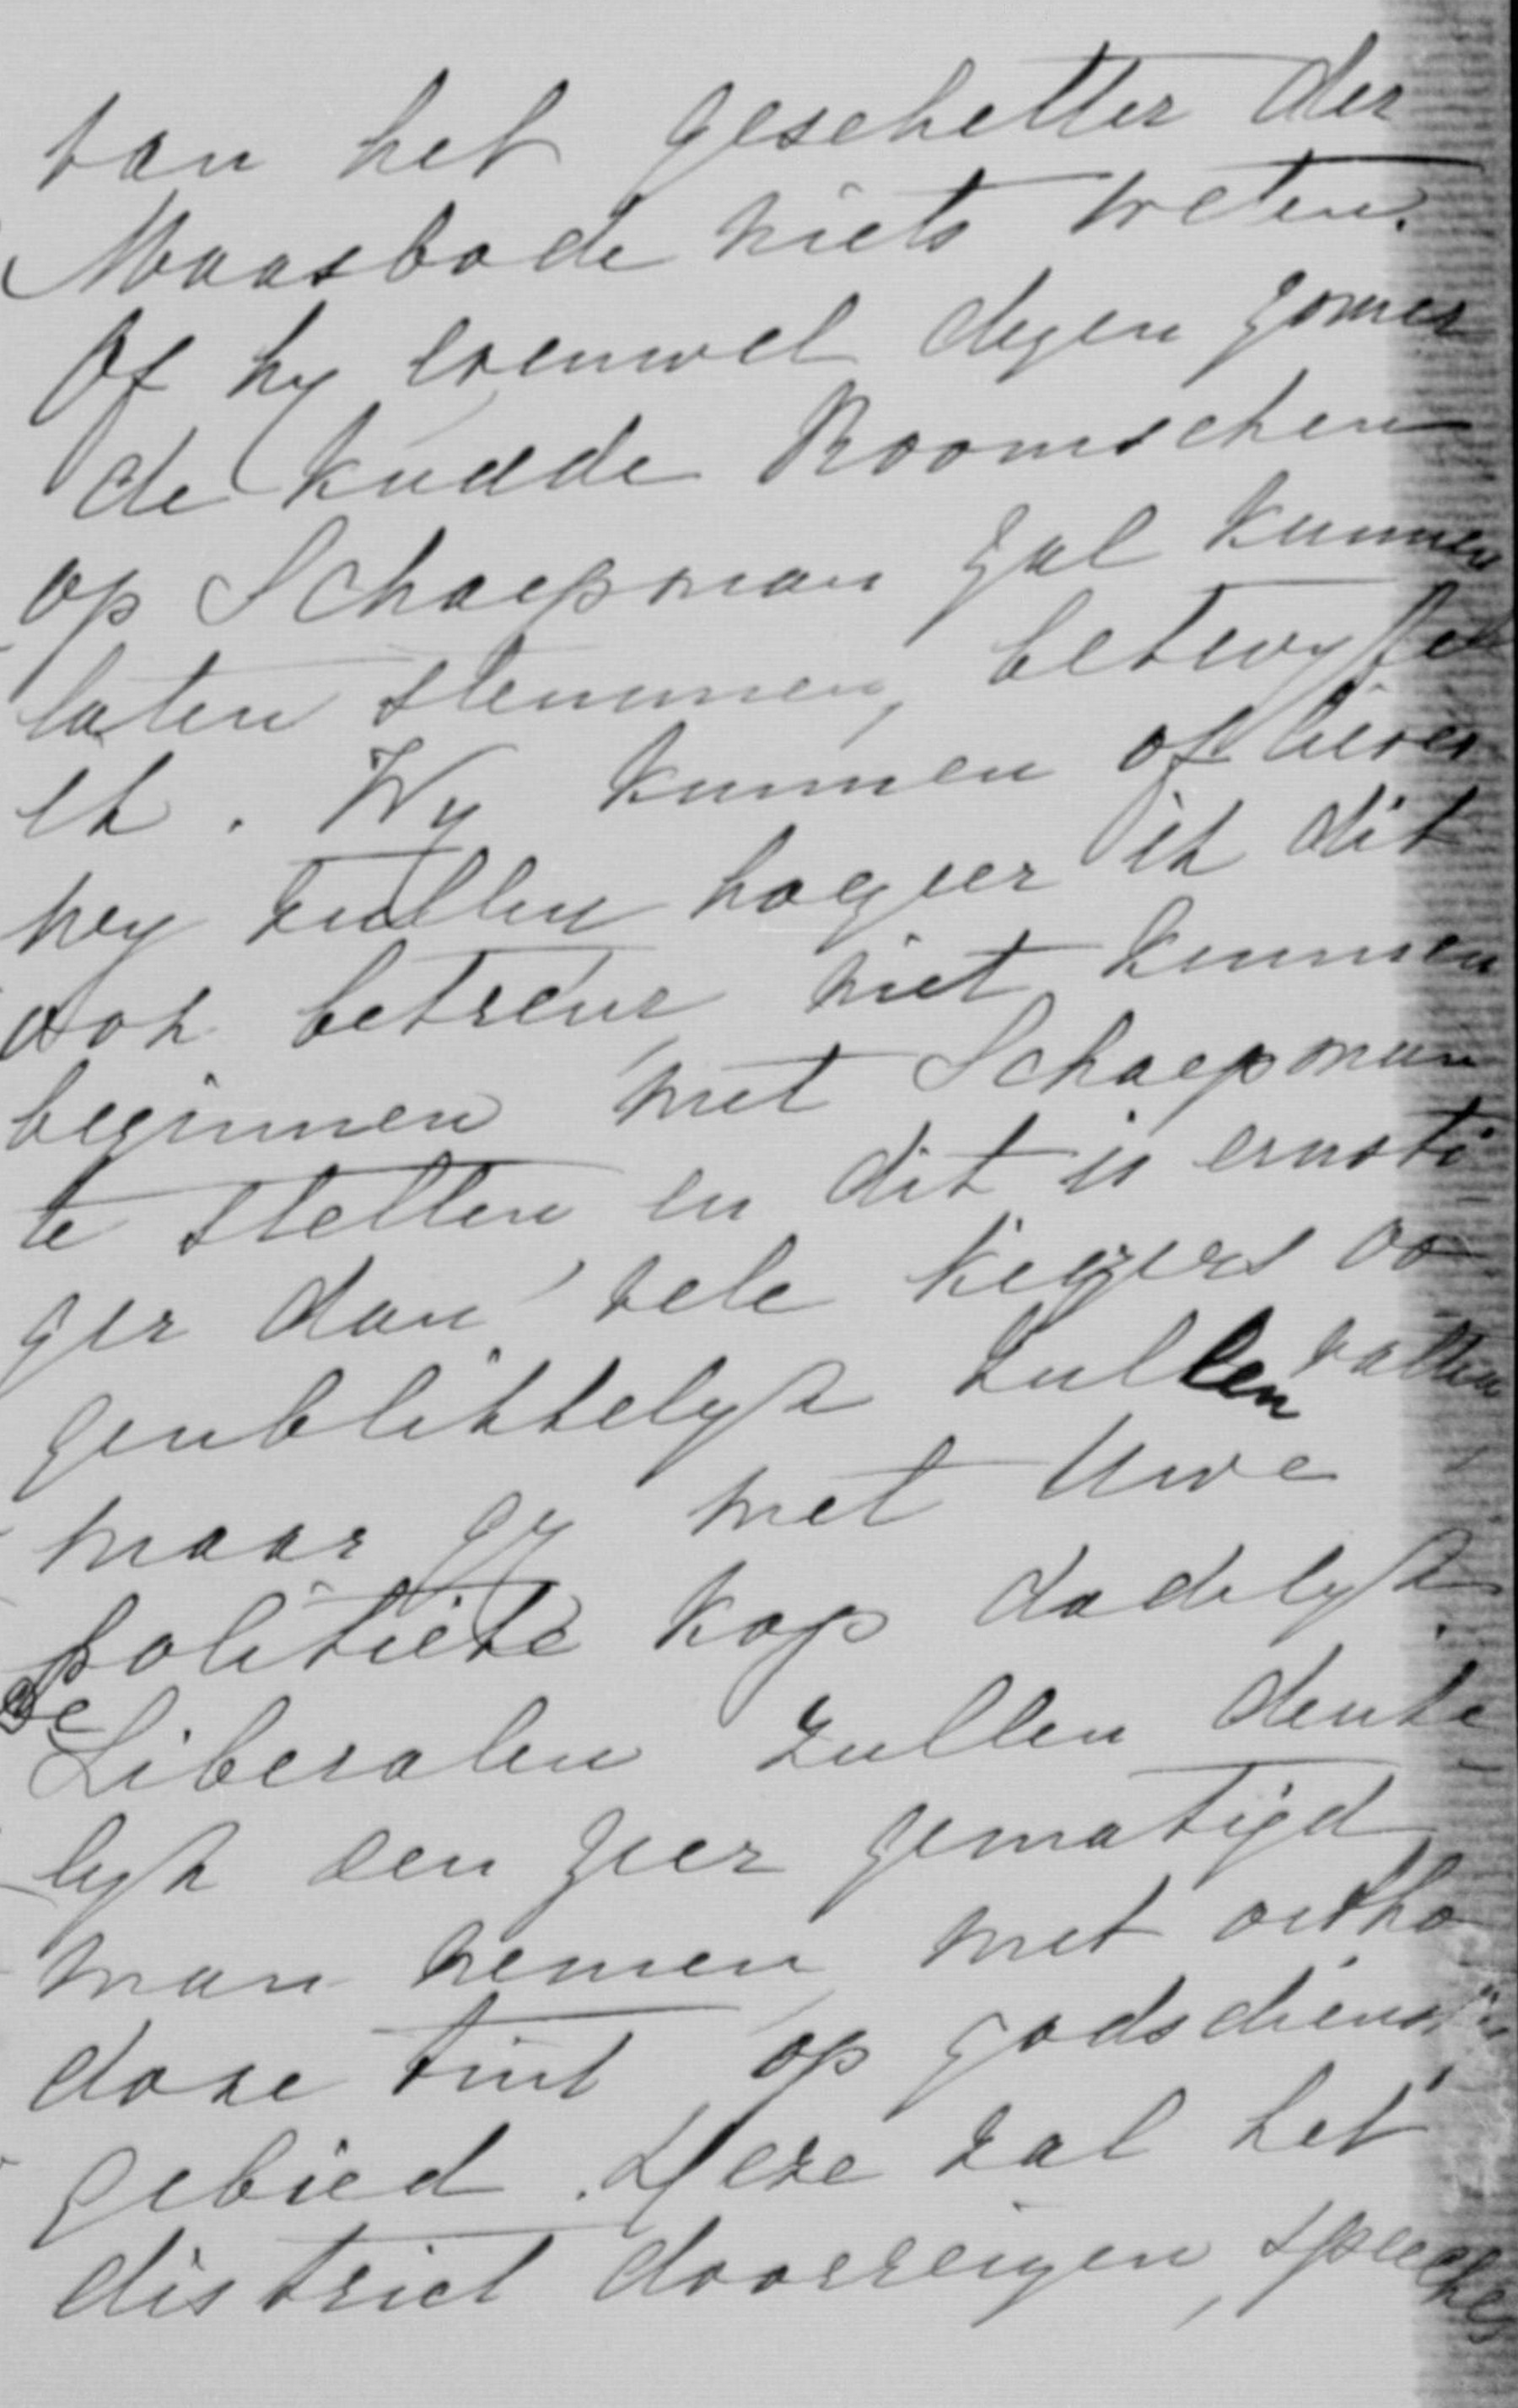 van het geschetter der
Maasbode niets weten.
Of hy evenwel dezen zomer
de kudde Roomschen
op Schaepman zal kunnen
laten stemmen, betwyfel
ik. Wy kunnen of liever
wy zullen hoezeer ik dit
ook betreur niet kunnen
beginnen met Schaepman
te stellen en dit is ernsti
ger dan vele kiezers oo
genblikkelyk zullen vatten
maar gy met Uwe
politieke kop dadelyk.
De Liberalen zullen denke
lyk een zeer gematigd
man nemen, met ortho
doxe tint op godsdienstig
gebied. Deze zal het
district doorreizen, speeches